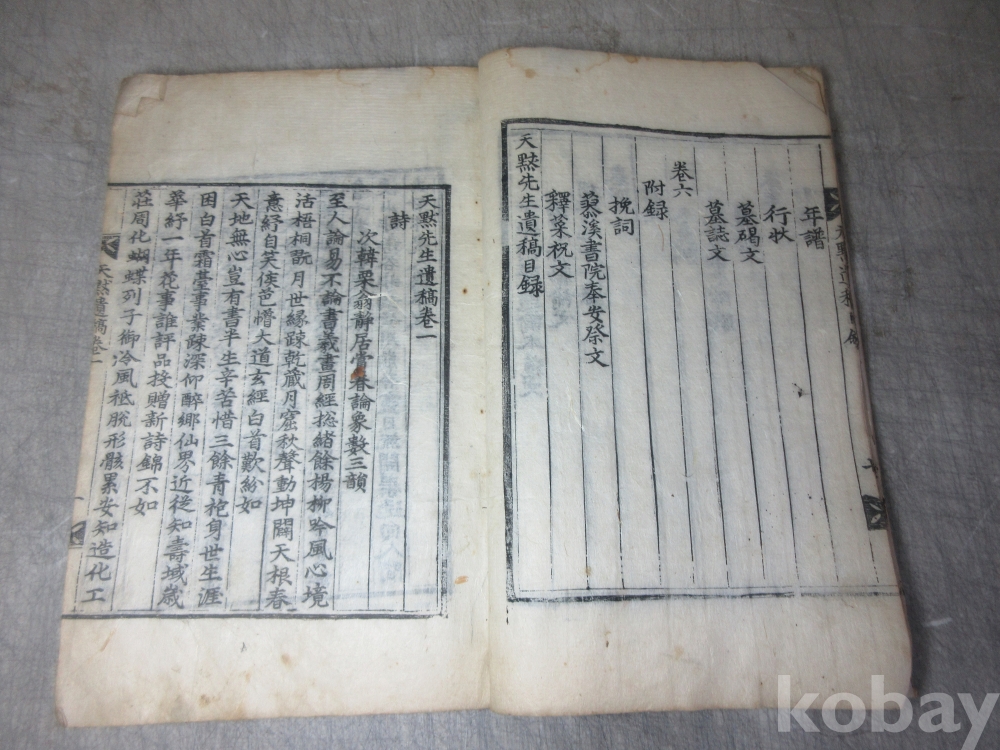 年譜
行狀
墓碣文
墓誌文
卷六
附録
挽詞
慕溪書院奉安祭文
釋菜祝文
天黙先生遺稿目録
天黙先生遺稿卷一
詩
次韓栗翁靜居賞春論象數三韻
至人論易不論書羲畫周經捴緒餘楊柳吟風心境
活梧桐翫月世縁踈乾藏月窟秋聲動坤闢天根春
意紓自笑侯芭懵大道玄經白首歎紛如
天地無心豈有書半生辛苦惜三餘青袍身世生涯
困白首霜臺事業踈深仰醉鄉仙界近從知壽域歲
華紓一年花事誰評品投贈新詩錦不如
莊周化蝴蝶列子御冷風秪脫形骸累安知造化工
天黙遺稿卷一
kobay